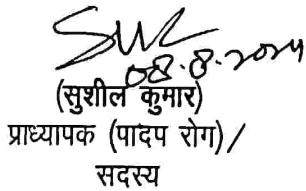 08.8.2024
(सुशील कुमार)
प्राध्यापक (पादप रोग)/
सदस्य